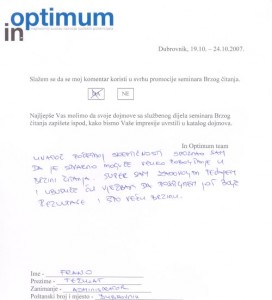 optimum
in
Dubrovnik, 19.10. – 24.10.2007.
Slažem se da se moj komentar koristi u svrhu promocije seminara Brzog čitanja.
DA NE
Najljepše Vas molimo da svoje dojmove sa službenog dijela seminara Brzog
čitanja zapišete ispod, kako bismo Vaše impresije uvrstili u katalog dojmova.
In Optimum team
UNATOČ POČETNOJ SKEPTIČNOSTI SPOZNAO SAM
DA JE STVARNO MOGUĆE VELIKO POBOLJŠANJE U
BRZINI ČITANJA. SUPER SAM ZADOVOLJAN TEČAJEM
I UBUDUĆE ĆU VJEŽBATI DA POSTIGNEM JOŠ BOLJE
REZULTATE I ŠTO VEĆU BRZINU.
Ime - FRANO
Prezime -
Zanimanje - ADMINISTRATOR
Poštanski broj i mjesto - DUBROVNIK